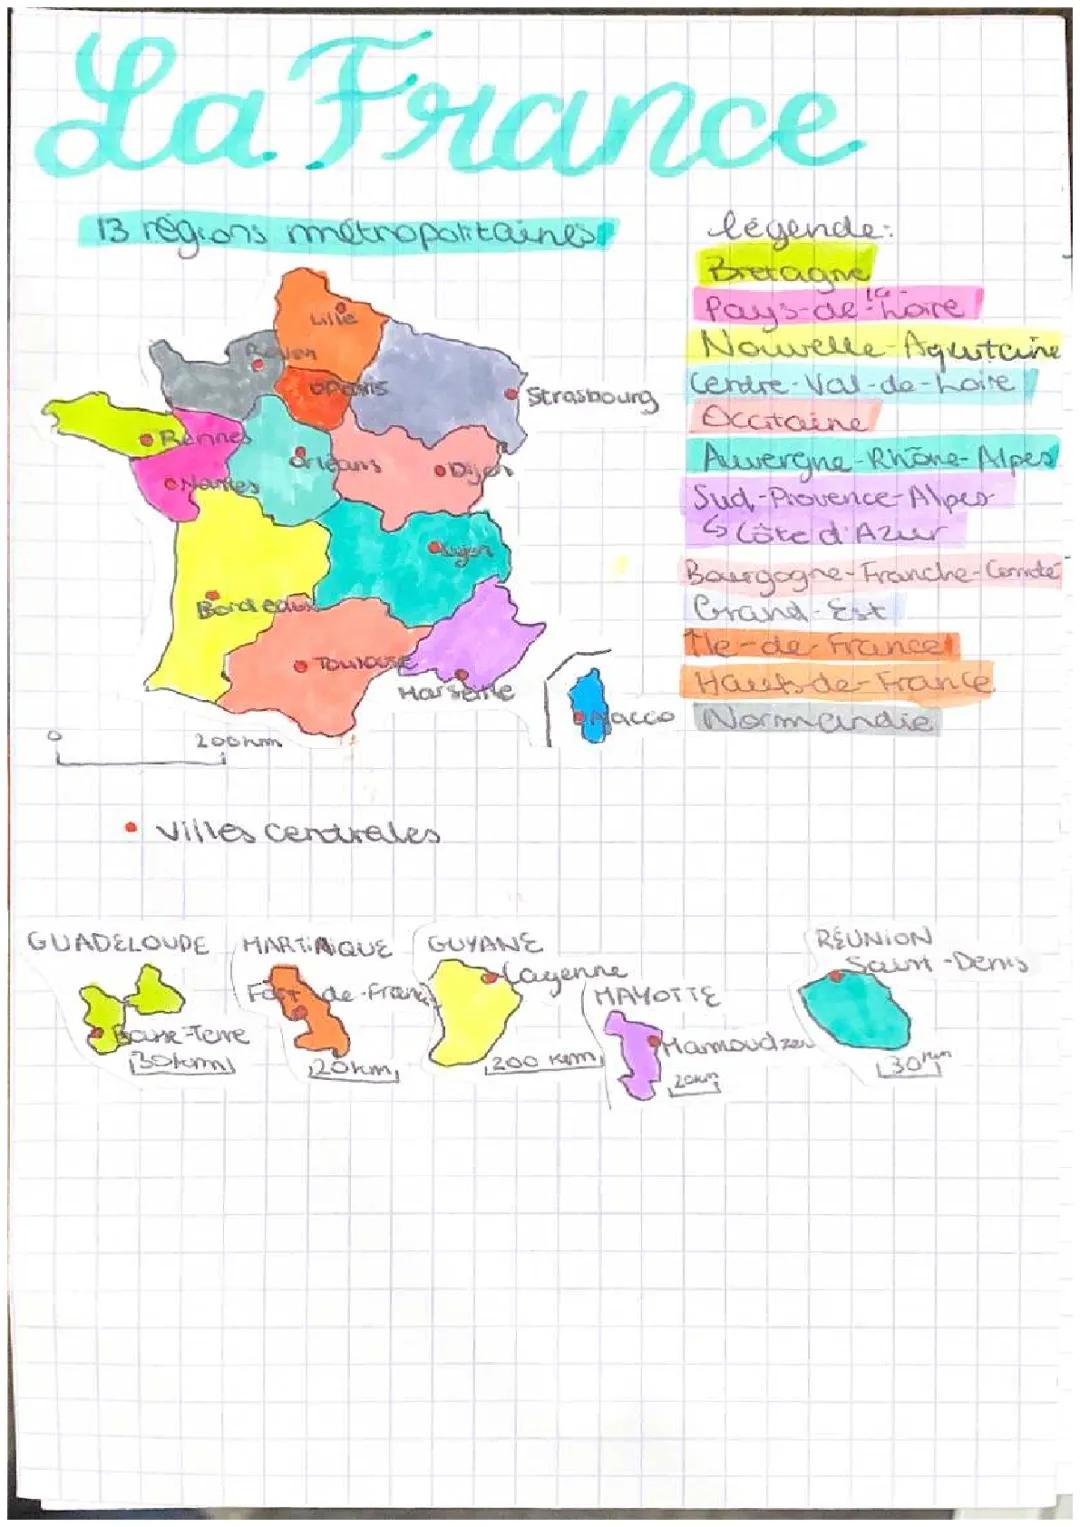 La France
13 régions métropolitaines
légende:
Bretagne
Pays-de-la-Loire
Nouvelle-Aquitaine
Centre-Val-de-Loire
Occitaine
Auvergne-Rhône-Alpes
Sud-Provence-Alpes-
↳ Côte d'Azur
Bourgogne-Franche-Comté
Grand-Est
Île-de-France
Hauts-de-France
Normandie
Lille
Rouen
Paris
Strasbourg
Rennes
Orléans
Dijon
Nantes
Lyon
Bordeaux
Toulouse
Marseille
Ajacco
0
200km
• Villes centrales
GUADELOUPE
Basse-Terre
30km
MARTINIQUE
Fort-de-Franc
20km
GUYANE
Cayenne
200 km
MAYOTTE
Mamoudzou
20km
RÉUNION
Saint-Denis
30km